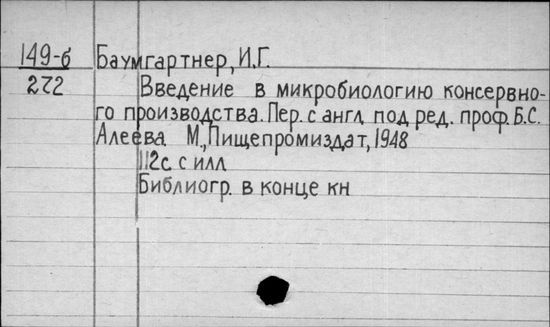 149-б Баумгартнер, И.Г.
272 Введение в микробиологию консервно-
го производства. Пер. с англ. под ред. проф. Б.С.
Алеева. М., Пищепромиздат, 1948
112с. с илл
Библиогр. в конце кн